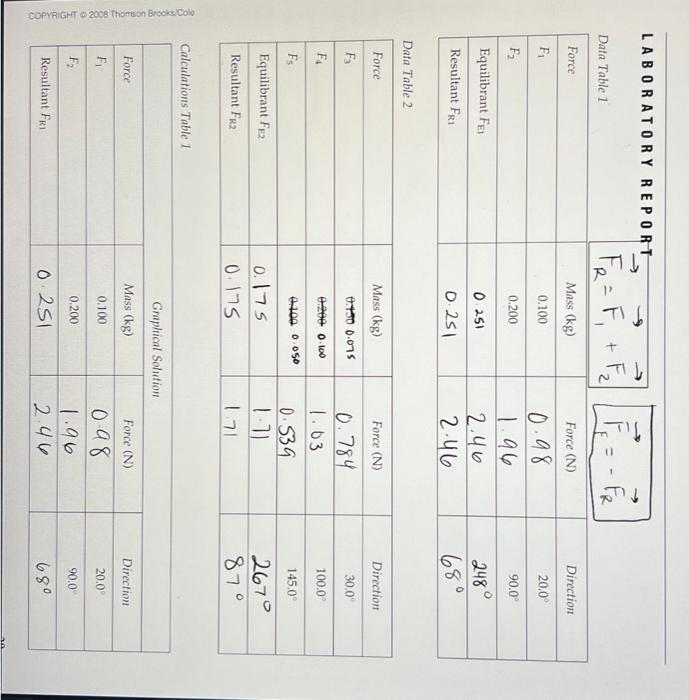 LABORATORY REPORT
F_R = F_1 + F_2
F_E = -F_R
Data Table 1
Force Mass (kg) Force (N) Direction
F1 0.100 0.98 20.0°
F2 0.200 1.96 90.0°
Equilibrant FE1 0.251 2.46 248°
Resultant FR1 0.251 2.46 68°
Data Table 2
Force Mass (kg) Force (N) Direction
F3 0.150 0.075 0.784 30.0°
F4 0.200 0.100 1.03 100.0°
F5 0.100 0.050 0.539 145.0°
Equilibrant FE2 0.175 1.71 267°
Resultant FR2 0.175 1.71 87°
Calculations Table 1
Graphical Solution
Force Mass (kg) Force (N) Direction
F1 0.100 0.98 20.0°
F2 0.200 1.96 90.0°
Resultant FR1 0.251 2.46 68°
COPYRIGHT © 2008 Thomson Brooks/Cole